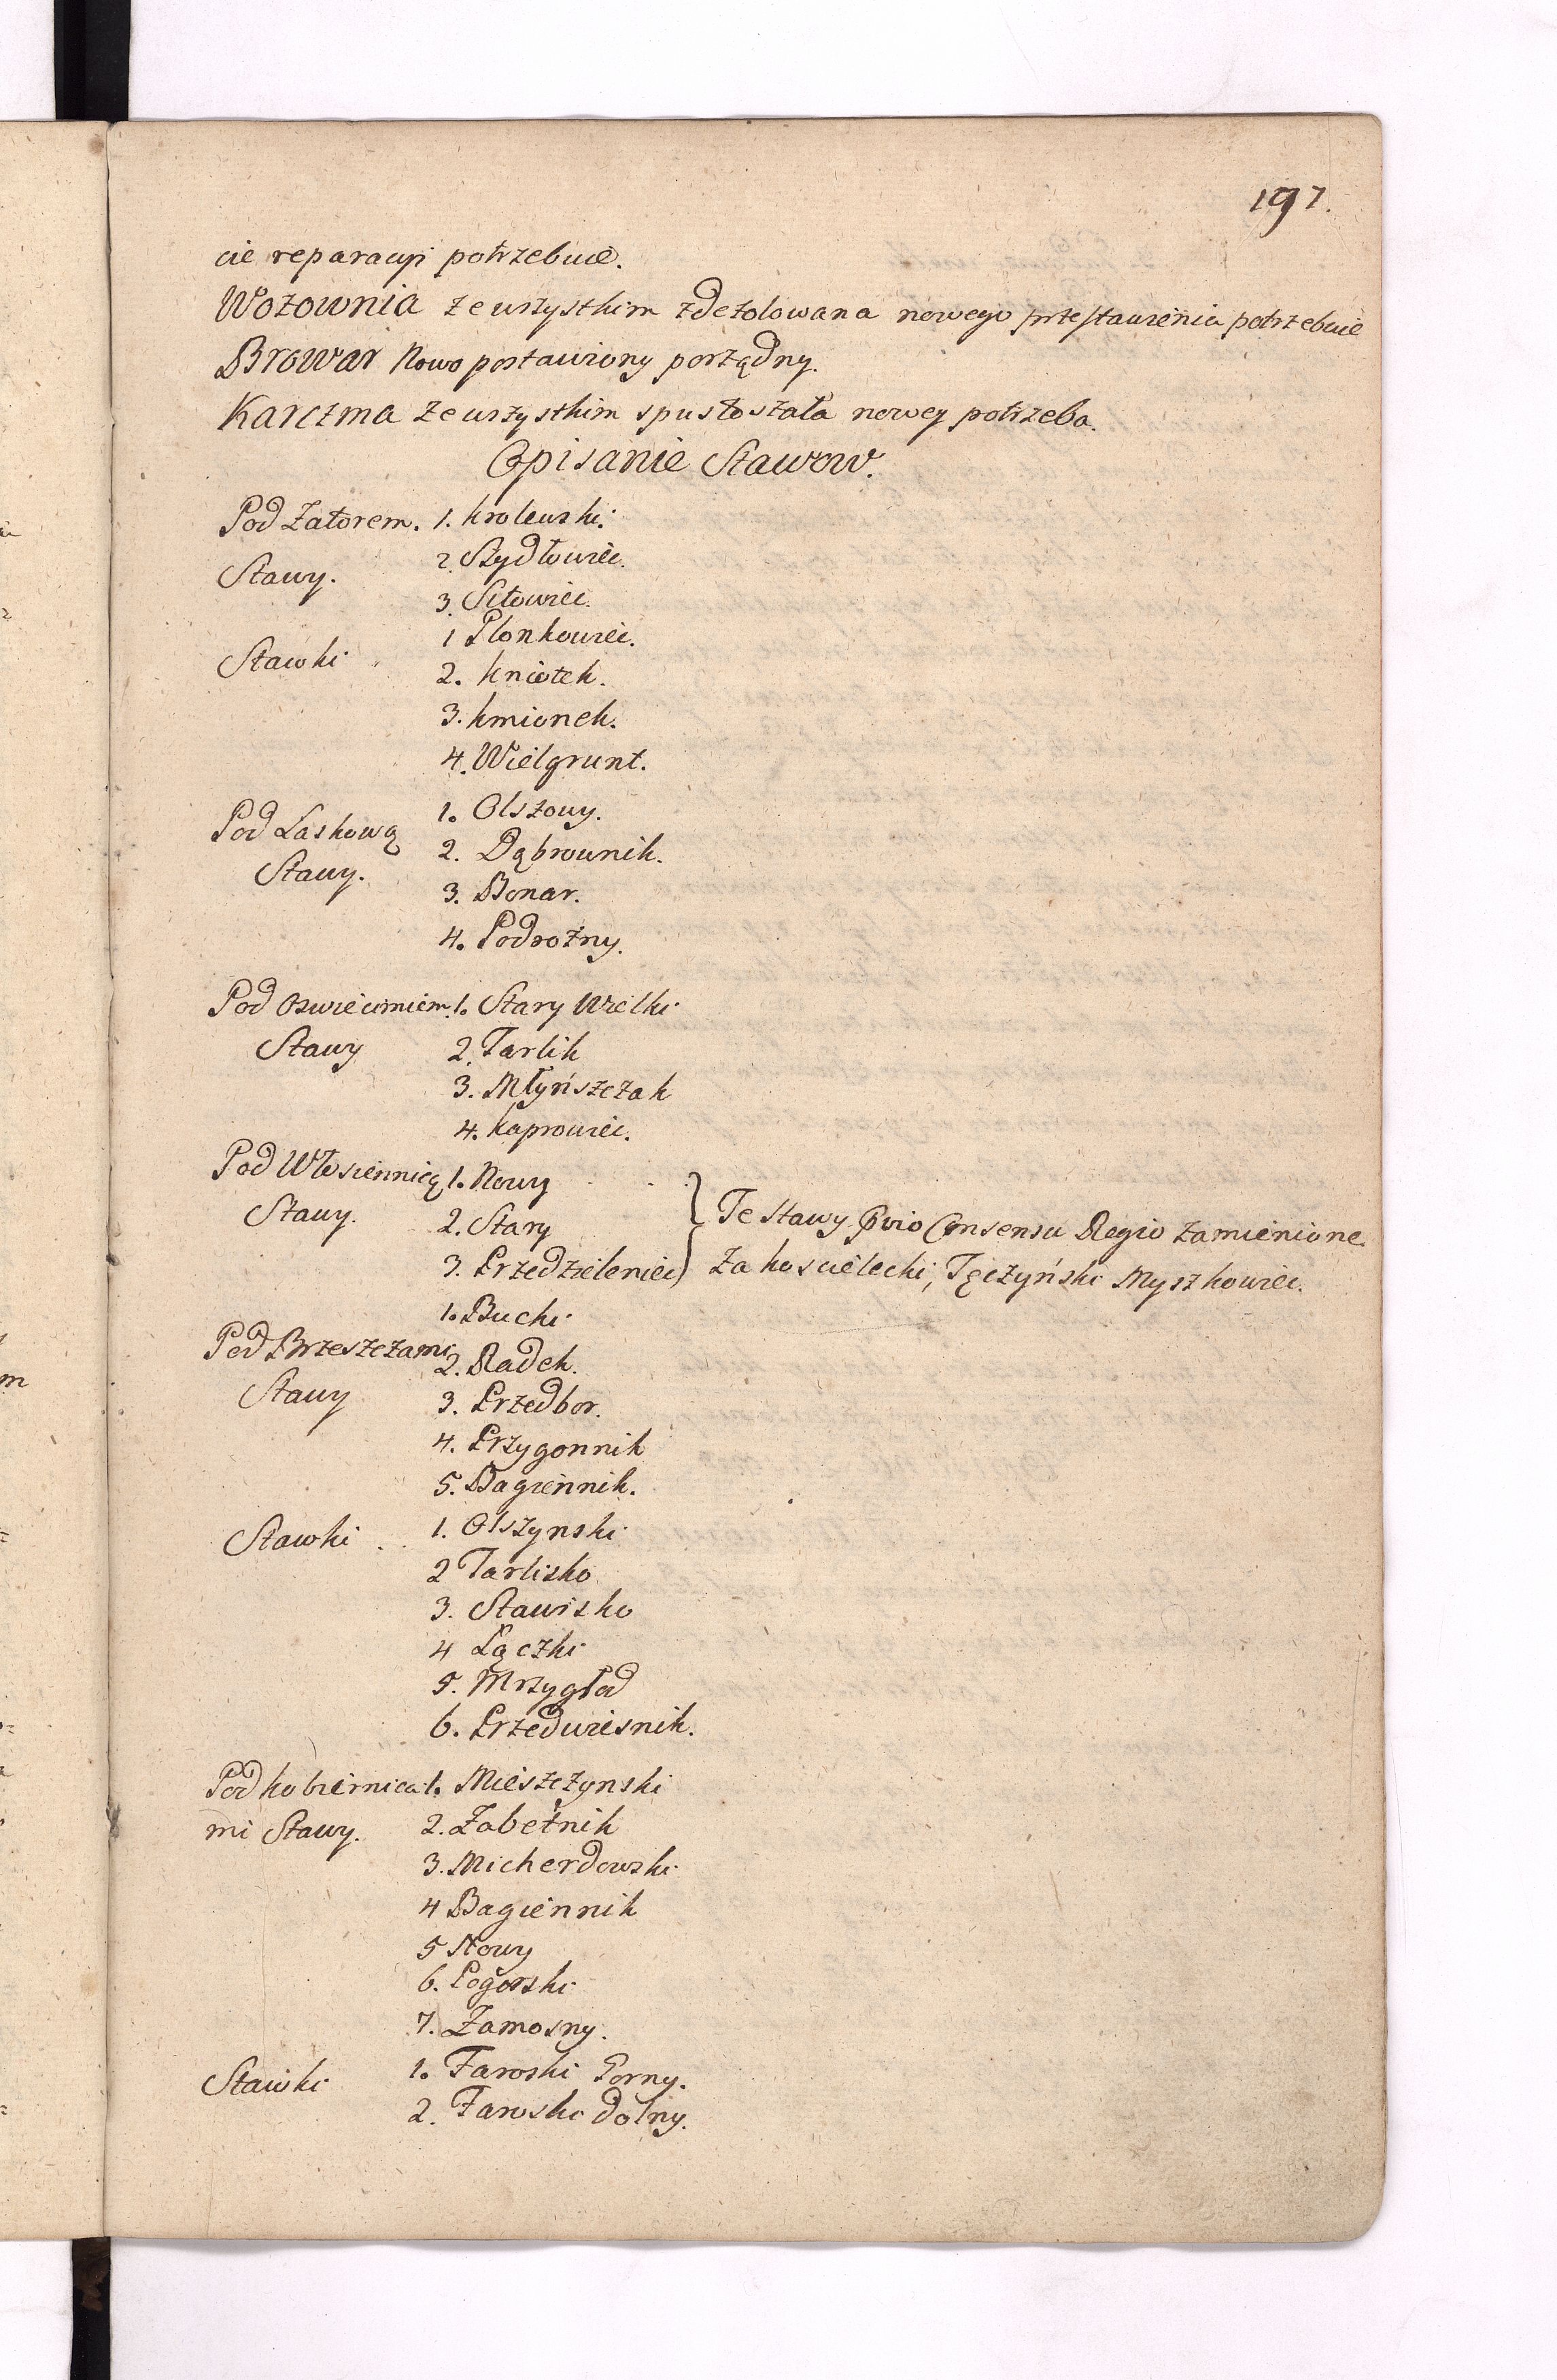 197.
cie reparacyi potrzebuie.
Wozownia ze wszystkim zdezolowana nowego przestawienia potrzebuie
Browar Nowo postawiony porządny.
Karczma ze wszystkim spustoszała nowey potrzeba.
Opisanie Stawow.
Pod Zatorem. 1. Krolewski.
Stawy. 2. Szydłowiec.
3. Sitowiec.
Stawki 1 Plonkowiec.
2. Kniotek.
3. Kmionek.
4. Wielgrunt.
Pod Laskową 1. Olszowy.
Stawy. 2. Dąbrownik.
3. Bonar.
4. Podrożny.
Pod Oswiecimiem. 1. Stary Wielki
Stawy 2. Tarlik
3. Młyńszczak
4. Kaprowiec.
Pod Włosiennicą 1. Nowy
Stawy. 2. Stary } Te stawy Consensu Regio zamienione
3. Przedzieleniec za Koscielecki, Tęczyński Myszkowiec.
1. Buchi
Pod Brzeszczami 2. Radek.
Stawy 3. Przedbor.
4. Przygonnik
5. Bagiennik.
Stawki 1. Olszynski
2 Tarlisko
3. Stawisko
4 Łączki
5. Mrzygłod
6. Przedwiesnik.
Pod Kobiernica: 1. Mieszczynski
mi Stawy. 2. Zabełnik
3. Micherdowski
4 Bagiennik
5 Nowy
6. Pogorski
7. Zamosny.
Stawki 1. Faroski Gorny.
2. Faroski dolny.